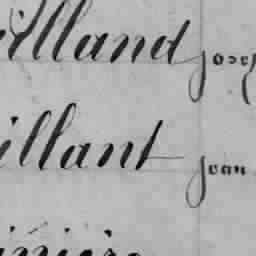 illand jose
illant jean
inière